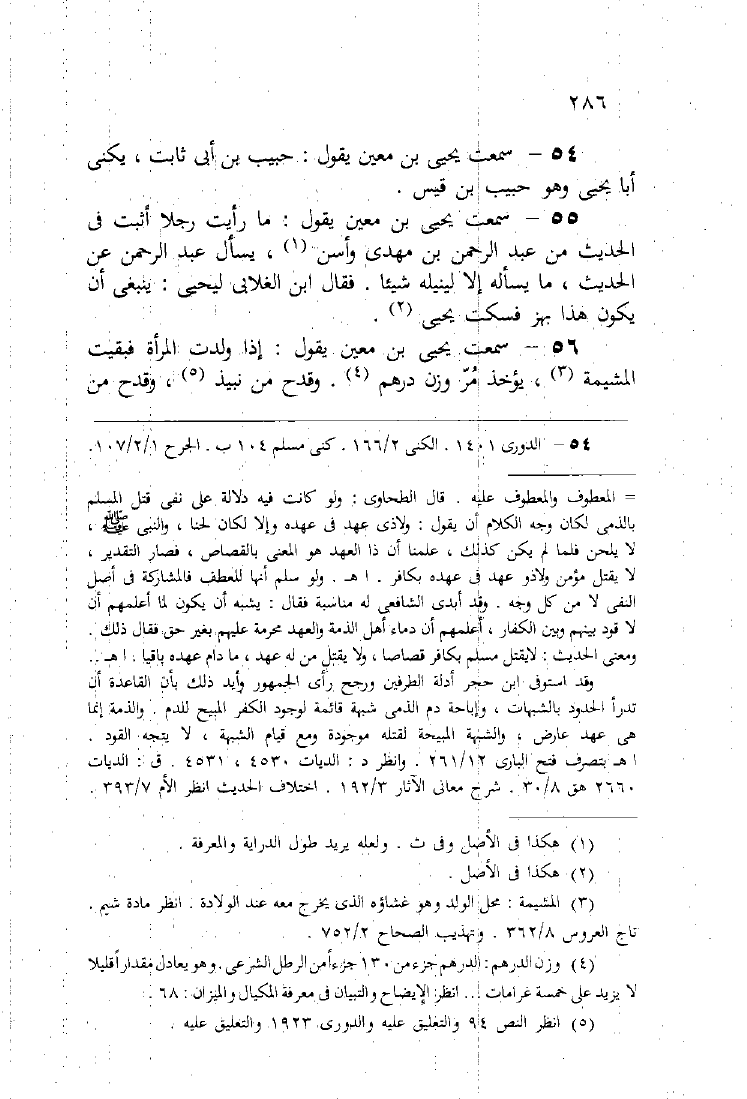 ٢٨٦
٥٤ – سمعت يحيى بن معين يقول : حبيب بن أبى ثابت ، يكنى
أبا يحيى وهو حبيب بن قيس .
٥٥ – سمعت يحيى بن معين يقول : ما رأيت رجلا أثبت فى
الحديث من عبد الرحمن بن مهدى وأسن (١) ، يسأل عبد الرحمن عن
الحديث ، ما يسأله إلا لينيله شيئا . فقال ابن الغلابى ليحيى : ينبغى أن
يكون هذا بهز فسكت يحيى (٢) .
٥٦ – سمعت يحيى بن معين يقول : إذا ولدت المرأة فبقيت
المشيمة (٣) ، يؤخذ مُرّ وزن درهم (٤) . وقدح من نبيذ (٥) ، وقدح من
٥٤ – الدورى ١٤٠١ . الكنى ١٦٦/٢ . كنى مسلم ١٠٤ ب . الجرح ١٠٧/٢/١ .
= المعطوف والمعطوف عليه . قال الطحاوى : ولو كانت فيه دلالة على نفى قتل المسلم
بالذمى لكان وجه الكلام أن يقول : ولاذى عهد فى عهده وإلا لكان لحنا ، والنبى ﷺ ،
لا يلحن فلما لم يكن كذلك ، علمنا أن ذا العهد هو المعنى بالقصاص ، فصار التقدير ،
لا يقتل مؤمن ولاذو عهد فى عهده بكافر . ا هـ . ولو سلم أنها للعطف فالمشاركة فى أصل
النفى لا من كل وجه . وقد أبدى الشافعى له مناسبة فقال : يشبه أن يكون لما أعلمهم أن
لا قود بينهم وبين الكفار ، أعلمهم أن دماء أهل الذمة والعهد محرمة عليهم بغير حق فقال ذلك .
ومعنى الحديث : لايقتل مسلم بكافر قصاصا ، ولا يقتل من له عهد ، ما دام عهده باقيا . ا هـ .
وقد استوفى ابن حجر أدلة الطرفين ورجح رأى الجمهور وأيد ذلك بأن القاعدة أن
تدرأ الحدود بالشبهات ، وإباحة دم الذمى شبهة قائمة لوجود الكفر المبيح للدم . والذمة إنما
هى عهد عارض ، والشبهة المبيحة لقتله موجودة ومع قيام الشبهة ، لا يتجه القود .
ا هـ بتصرف فتح البارى ٢٦١/١٢ . وانظر د : الديات ٤٥٣٠ ، ٤٥٣١ . ق : الديات
٢٦٦٠ هق ٣٠/٨ . شرح معانى الآثار ١٩٢/٣ . اختلاف الحديث انظر الأم ٣٩٣/٧ .
(١) هكذا فى الأصل وفى ث . ولعله يريد طول الدراية والمعرفة .
(٢) هكذا فى الأصل .
(٣) المشيمة : محل الولد وهو غشاؤه الذى يخرج معه عند الولادة . انظر مادة شيم .
تاج العروس ٣٦٢/٨ . وتهذيب الصحاح ٧٥٢/٢ .
(٤) وزن الدرهم : الدرهم جزء من ١٣٠ جزءأ من الرطل الشرعى . وهو يعادل مقدارا قليلا
لا يزيد على خمسة غرامات ... انظر الإيضاح والتبيان فى معرفة المكيال والميزان : ٦٨ .
(٥) انظر النص ٩٤ والتعليق عليه والدورى ١٩٢٣ والتعليق عليه .